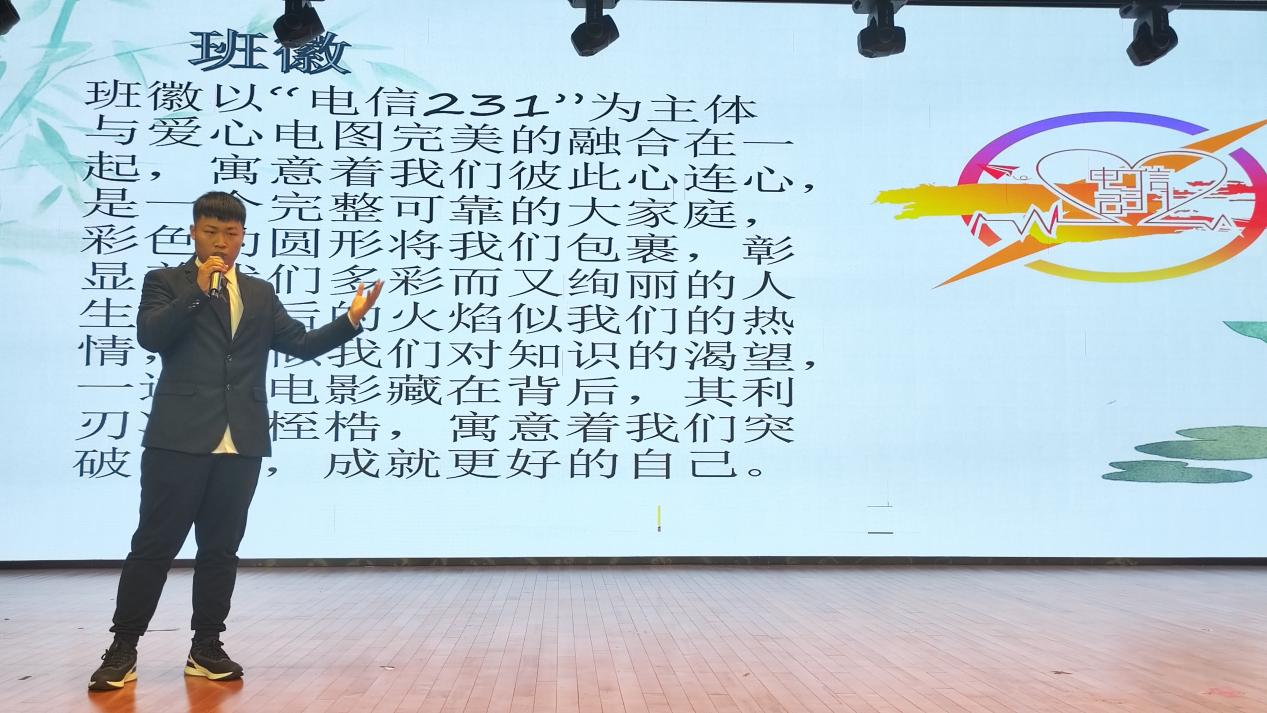 班徽
班徽以“电信231”为主体
与爱心电图完美的融合在一
起，寓意着我们彼此心连心，
是一个完整可靠的大家庭，
彩色 圆形将我们包裹，彰
显 我们多彩而又绚丽的人
生 后的火焰似我们的热
情， 似我们对知识的渴望，
一 电影藏在背后，其利
刃 桎梏，寓意着我们突
破 ，成就更好的自己。
电信